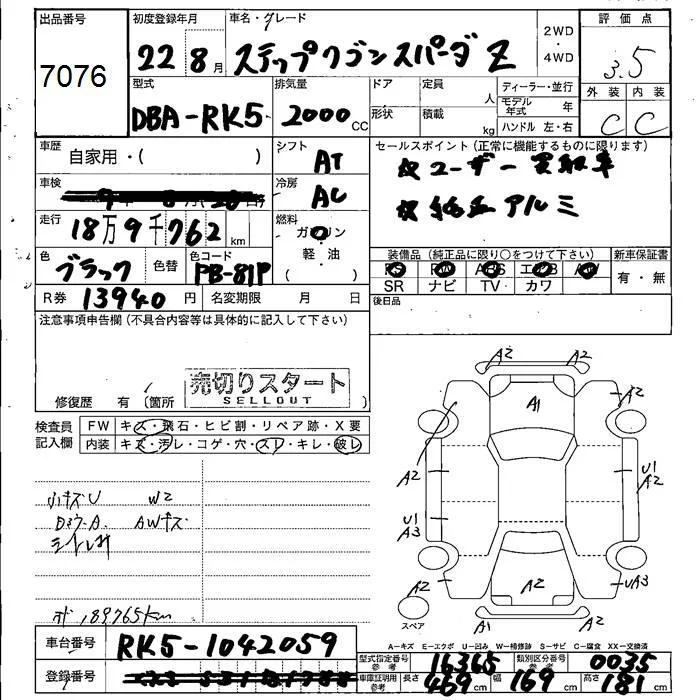 出品番号
7076
初度登録年月
22 年 8 月
車名・グレード
ステップワゴンスパーダ Z
2WD
・
4WD
評価点
3.5
外装 内装
C C
型式
DBA-RK5
排気量
2000 cc
ドア
定員
人
形状
積載
kg
ディーラー・並行
モデル年式 年
ハンドル 左・右
車歴
自家用・( )
シフト
AT
セールスポイント(正常に機能するものに限ります)
☆ユーザー買取車
☆純正アルミ
車検
冷房
AC
走行
18万9千762 km
燃料
ガソリン
軽・油
( )
色
ブラック
色替
色コード
PB-81P
装備品(純正品に限り○をつけて下さい)
PS PW ABS エアB AW
SR ナビ TV カワ
新車保証書
有・無
R券 13940 円
名変期限 月 日
後日品
注意事項申告欄(不具合内容等は具体的に記入して下さい)
売切りスタート
SELLOUT
修復歴 有(箇所 )
検査員記入欄
FW キズ・飛石・ヒビ割・リペア跡・X要
内装 キズ・汚レ・コゲ・穴・スレ・キレ・破レ
小キズU W2
AWキズ
89765km
A2 A2
A1
A2
A2
A2
U1
A3
U1
A2
A2
A2
UA3
A1
A2
スペア
A-キズ E-エクボ U-凹み W-補修跡 S-サビ C-腐食 XX-交換済
車台番号
RK5-1042059
登録番号
型式指定番号
参考
16365
類別区分番号
参考
0035
車庫証明用
参考
長さ 469 cm
幅 169 cm
高さ 181 cm